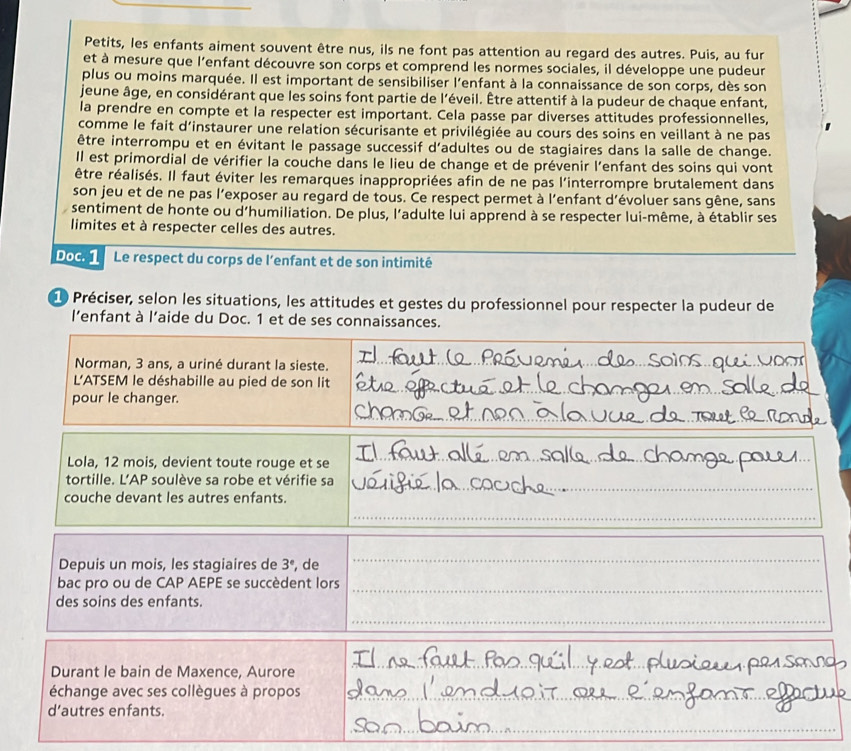 Petits, les enfants aiment souvent être nus, ils ne font pas attention au regard des autres. Puis, au fur
et à mesure que l'enfant découvre son corps et comprend les normes sociales, il développe une pudeur
plus ou moins marquée. Il est important de sensibiliser l'enfant à la connaissance de son corps, dès son
jeune âge, en considérant que les soins font partie de l'éveil. Être attentif à la pudeur de chaque enfant,
la prendre en compte et la respecter est important. Cela passe par diverses attitudes professionnelles,
comme le fait d'instaurer une relation sécurisante et privilégiée au cours des soins en veillant à ne pas
être interrompu et en évitant le passage successif d'adultes ou de stagiaires dans la salle de change.
Il est primordial de vérifier la couche dans le lieu de change et de prévenir l'enfant des soins qui vont
être réalisés. Il faut éviter les remarques inappropriées afin de ne pas l'interrompre brutalement dans
son jeu et de ne pas l'exposer au regard de tous. Ce respect permet à l'enfant d'évoluer sans gêne, sans
sentiment de honte ou d'humiliation. De plus, l'adulte lui apprend à se respecter lui-même, à établir ses
limites et à respecter celles des autres.
Doc. 1 Le respect du corps de l'enfant et de son intimité
1 Préciser, selon les situations, les attitudes et gestes du professionnel pour respecter la pudeur de
l'enfant à l'aide du Doc. 1 et de ses connaissances.
Norman, 3 ans, a uriné durant la sieste.
L'ATSEM le déshabille au pied de son lit
pour le changer.
Il faut le Prévener des soins qui vont
être effectué et le changer en salle de
change et non à la vue de Tout le monde
Lola, 12 mois, devient toute rouge et se
tortille. L'AP soulève sa robe et vérifie sa
couche devant les autres enfants.
Il faut allé en salle de change pour
vérifié la couche.
Depuis un mois, les stagiaires de 3e, de
bac pro ou de CAP AEPE se succèdent lors
des soins des enfants.
Durant le bain de Maxence, Aurore
échange avec ses collègues à propos
d'autres enfants.
Il ne faut Pas qu'il y est plusieur personnes
dans l'endroit ou l'enfant effectue
son bain.